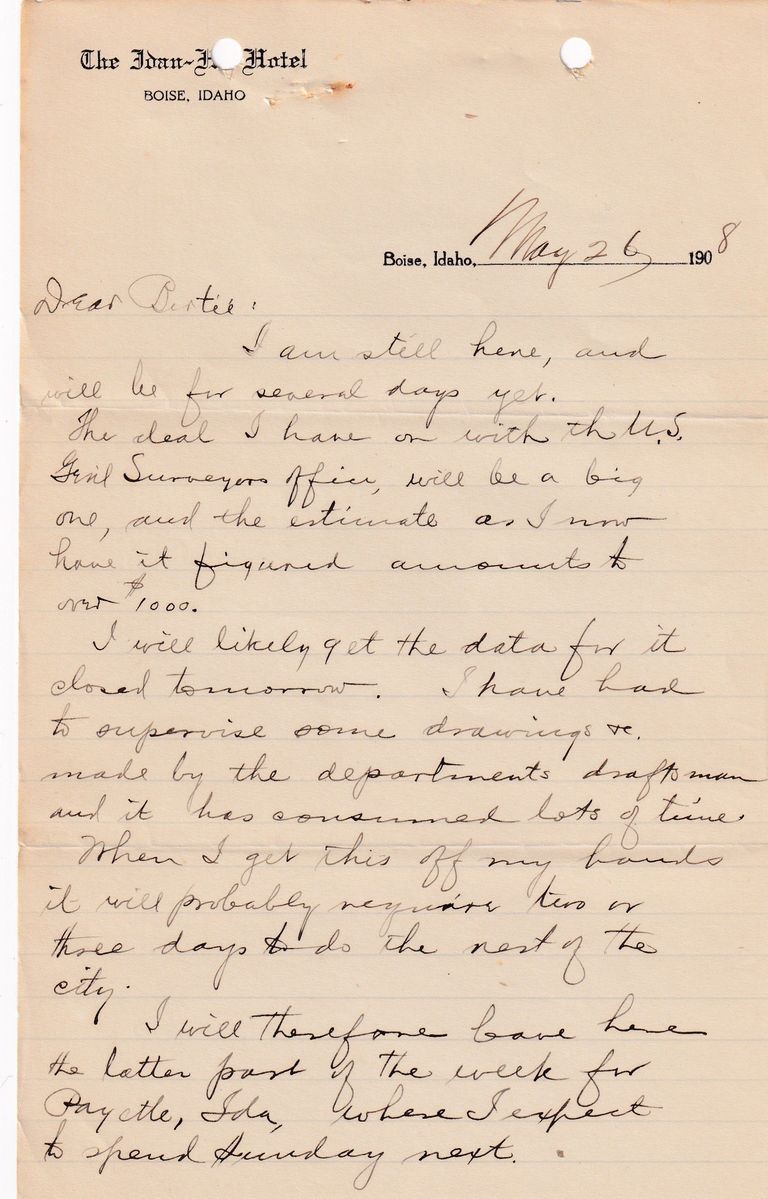 The Idan-H Hotel
BOISE, IDAHO
Boise, Idaho, May 26 1908
Dear Bertie:
I am still here, and
will be for several days yet.
The deal I have on with th U.S.
Genl Surveyors office, will be a big
one, and the estimate as I now
have it figured amounts to
over $1000.
I will likely get the data for it
closed tomorrow. I have had
to supervise some drawings &c.
made by the departments draftsman
and it has consumed lots of time.
When I get this off my hands
it will probably require two or
three days to do the rest of the
city.
I will therefore leave here
the latter part of the week for
Payette, Ida, where I expect
to spend Sunday next.